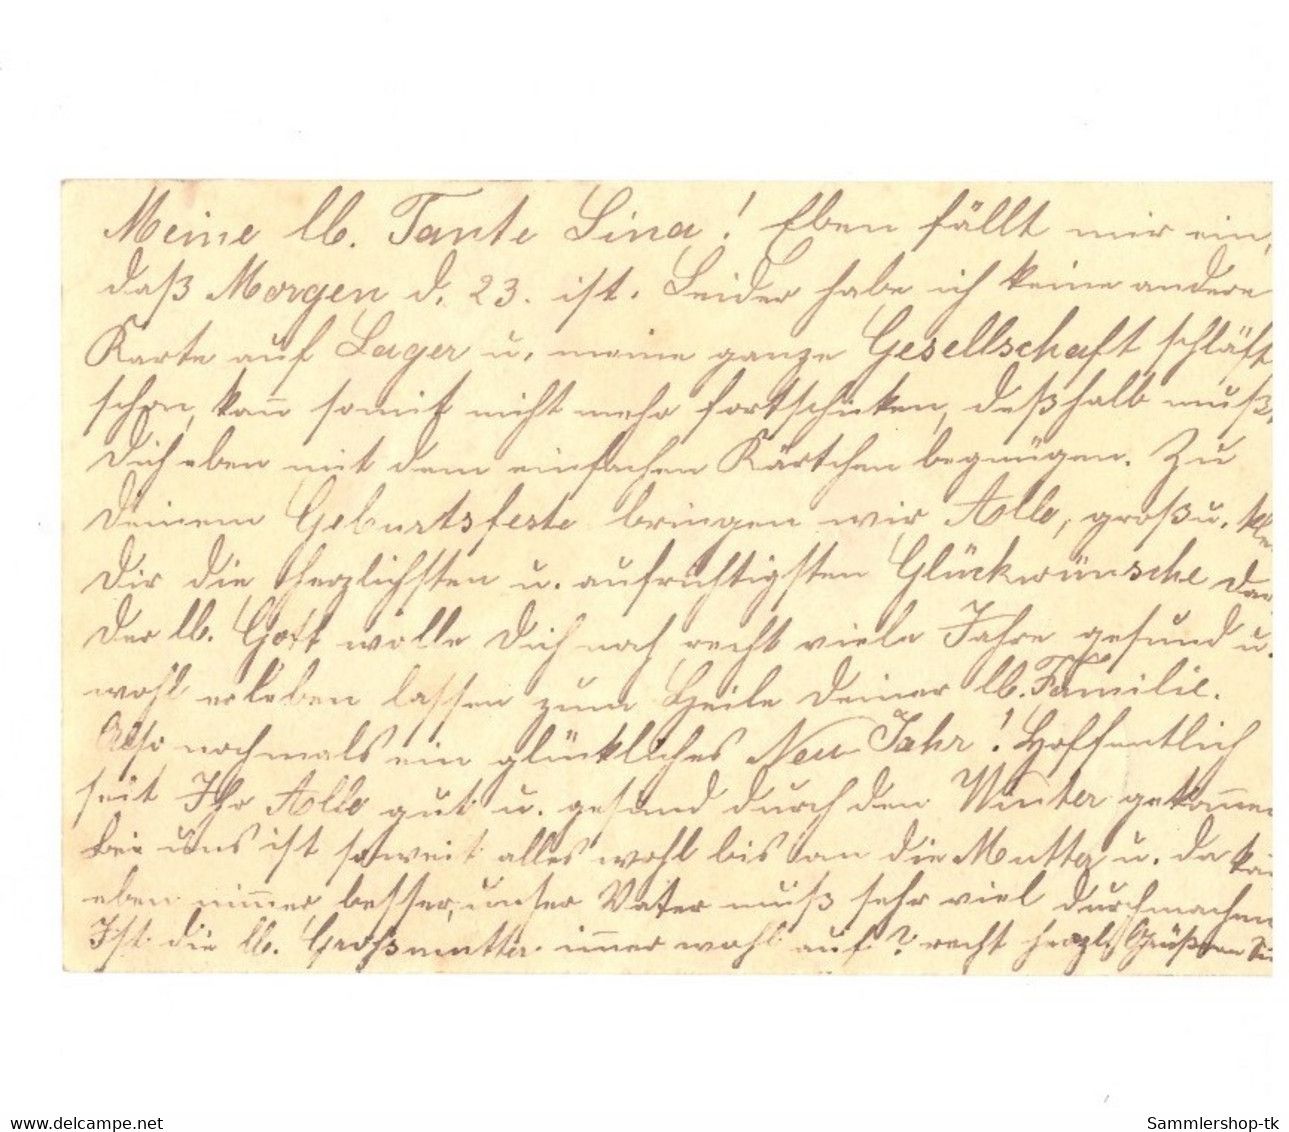 Meine lb. Tante Lina! Eben fällt mir ein,
daß Morgen d. 23. ist. Leider habe ich keine andere
Karte auf Lager u. meine ganze Gesellschaft schläft
schon, kann somit nicht mehr fortschicken, deßhalb muß
Dich eben mit dem einfachen Kärtchen begnügen. Zu
Deinem Geburtsfeste bringen wir Alle, groß u. kle
Dir die herzlichsten u. aufrichtigsten Glückwünsche dar
Der lb. Gott wolle Dich noch recht viele Jahre gesund u.
wohl erleben lassen zum Heile Deiner lb. Familie.
Also nochmals ein glückliches Neu Jahr! Hoffentlich
seit Ihr Alle gut u. gesund durch den Winter gekommen
Bei uns ist soweit alles wohl bis an die Mutter u. da
eben nimmer besser, unser Vater muß sehr viel durchmachen
Ist die lb. Großmutter immer wohl auf? recht herzl. Grüßen
www.delcampe.net
Sammlershop-tk